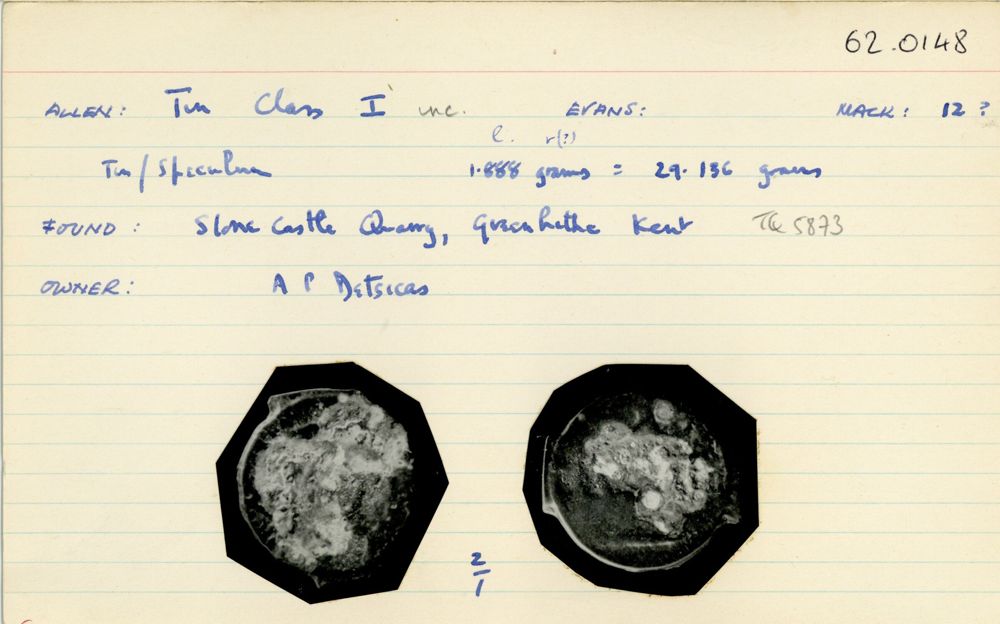 62.0148
ALLEN: Tin Class I inc. EVANS: MACK: 12 ?
l. r(?)
Tin / Speculum 1.888 grams = 29.136 grains
FOUND: Stone Castle Quarry, Greenhithe Kent TQ 5873
OWNER: A P Detsicas
2/1